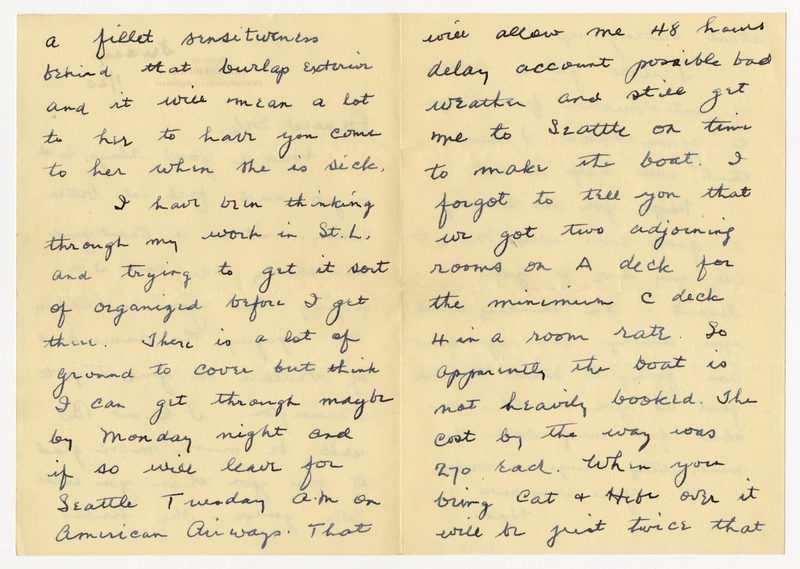 a fillet sensitiveness
behind that burlap exterior
and it will mean a lot
to her to have you come
to her when she is sick.
I have been thinking
through my work in St. L.
and trying to get it sort
of organized before I get
there. There is a lot of
ground to cover but think
I can get through maybe
by Monday night and
if so will leave for
Seattle Tuesday A.M on
American Airways. That
will allow me 48 hours
delay account possible bad
weather and still get
me to Seattle on time
to make the boat. I
forgot to tell you that
we got two adjoining
rooms on A deck for
the minimum C deck
4 in a room rate. So
apparently the boat is
not heavily booked. The
cost by the way was
270 each. When you
bring Cat & Hebe over it
will be just twice that